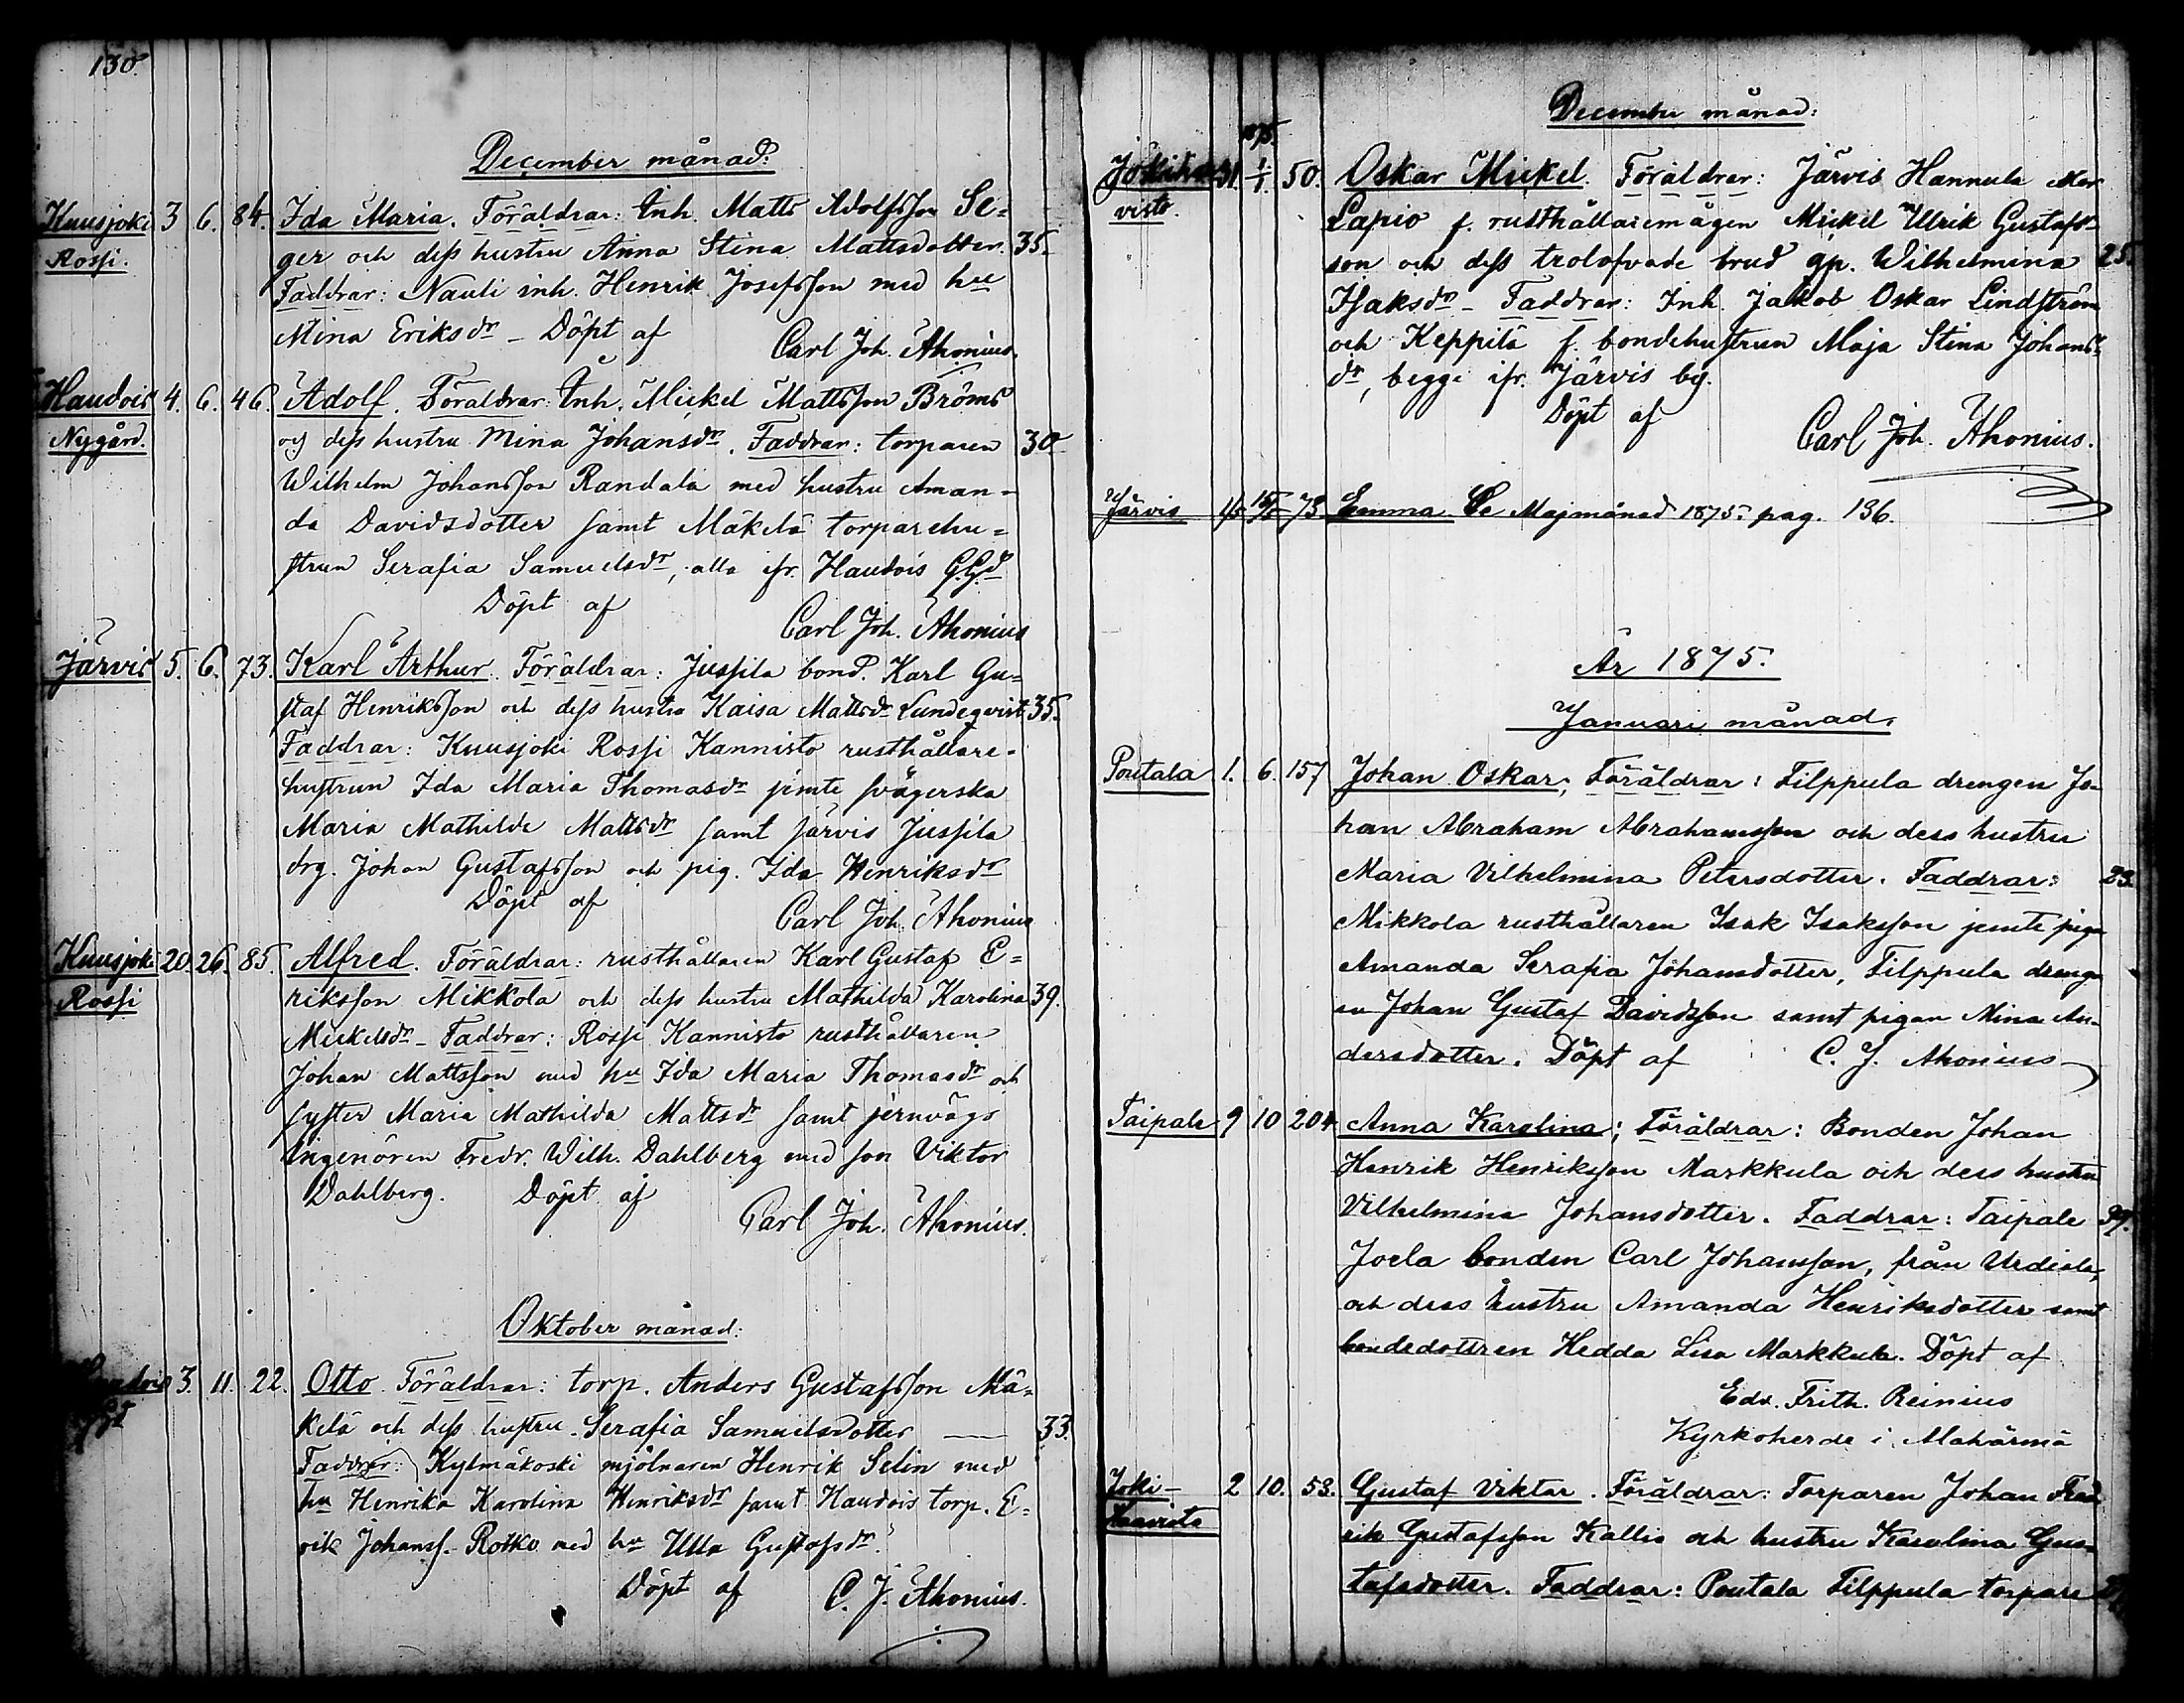 130.
December månad:
Kuusjoki 3 6. 84. Ida Maria. Föräldrar: Inh. Matts Adolfsson Se=
Rossi. ger och dess hustru Anna Stina Mattsdotter. 35.
Faddrar: Nauli inh. Henrik Josefsson med hu
Mina Eriksdr – Döpt af Carl Joh. Ahonius.
Haudois 4. 6. 46. Adolf. Föräldrar: Inh. Mickel Mattsson Bröms
Nygård. och dess hustru Mina Johansdr. Faddrar: torparen 30.
Wilhelm Johansson Randala med hustru Aman=
da Davidsdotter samt Mäkelä torparehu=
strun Serafia Samuelsdr, alla ifr. Haudois G.Gd
Döpt af
Carl Joh. Ahonius
Järvis 5. 6. 73. Karl Arthur. Föräldrar: Jussila bond. Karl Gu=
staf Henriksson och dess hustru Kaisa Mattsdr Lundeqvist 35.
Faddrar: Kuusjoki Rossi Kannisto rusthållare-
hustrun Ida Maria Thomasdr jemte svägerska
Maria Mathilda Mattsdr samt Järvis Jussila
drg. Johan Gustafsson och pig. Ida Henriksdr
Döpt af
Carl Joh. Ahonius
Kuusjoki 20. 26. 85. Alfred. Föräldrar: rusthållaren Karl Gustaf E=
Rossi riksson Mikkola och dess hustru Mathilda Karolina 39.
Mickelsdr – Faddrar: Rossi Kannisto rusthållaren
Johan Mattsson med hu Ida Maria Thomasdr och
syster Maria Mathilda Mattsdr samt jernvägs
ingenören Fredr. Wilh. Dahlberg med son Viktor
Dahlberg. Döpt af
Carl Joh. Ahonius.
Oktober månad:
Haudois 3. 11. 22. Otto. Föräldrar: torp. Anders Gustafsson Mä=
GGd kelä och dess hustru Serafia Samuelsdotter — 33.
Faddrar: Kylmäkoski mjölnaren Henrik Selin med
hu Henrika Karolina Henriksdr samt Haudois torp. E=
rik Johanss. Rotko med hu Ulla Gustafsdr.
Döpt af C. J. Ahonius.
December månad:
1875.
Jokiha 31 1/1. 50. Oskar Mickel. Föräldrar: Järvis Hannula
visto. Lapio f. rusthållaremågen Mickel Ulrik Gustafs-
son och dess trolofvade brud qp. Wilhelmina 25.
Isaksdr – Faddrar: Inh. Jakob Oskar Lindström
och Keppilä f. bondehustrun Maja Stina Johans=
dr, begge ifr. Järvis by.
Döpt af
Carl Joh. Ahonius.
Järvis 73 Emma Se Majmånad 1875. pag. 136.
År 1875.
Januari månad.
Poutala 1. 6. 157 Johan Oskar; Föräldrar: Filppula drengen Jo-
han Abraham Abrahamsson och dess hustru
Maria Vilhelmina Petersdotter. Faddrar: 23.
Mikkola rusthållaren Isak Isaksson jemte piga
Amanda Serafia Johansdotter, Filppula dreng
en Johan Gustaf Davidsson samt pigan Mina An-
dersdotter. Döpt af C. J. Ahonius
Taipale 9 10 204 Anna Karolina; Föräldrar: Bonden Johan
Henrik Henriksson Markkula och dess hustru
Vilhelmina Johansdotter. Faddrar: Taipale 39.
Joela bonden Carl Johansson, från Urdiala,
och dess hustru Amanda Henriksdotter samt
bondedottren Hedda Lisa Markkula. Döpt af
Edv. Frith. Reinius
Kyrkoherde i Alahärmä
Joki- 2 10. 53. Gustaf Viktor. Föräldrar: Torparen Johan Fred
haavisto rik Gustafsson Kallio och hustru Karolina Gus-
tafsdotter. Faddrar: Poutala Filppula torpare